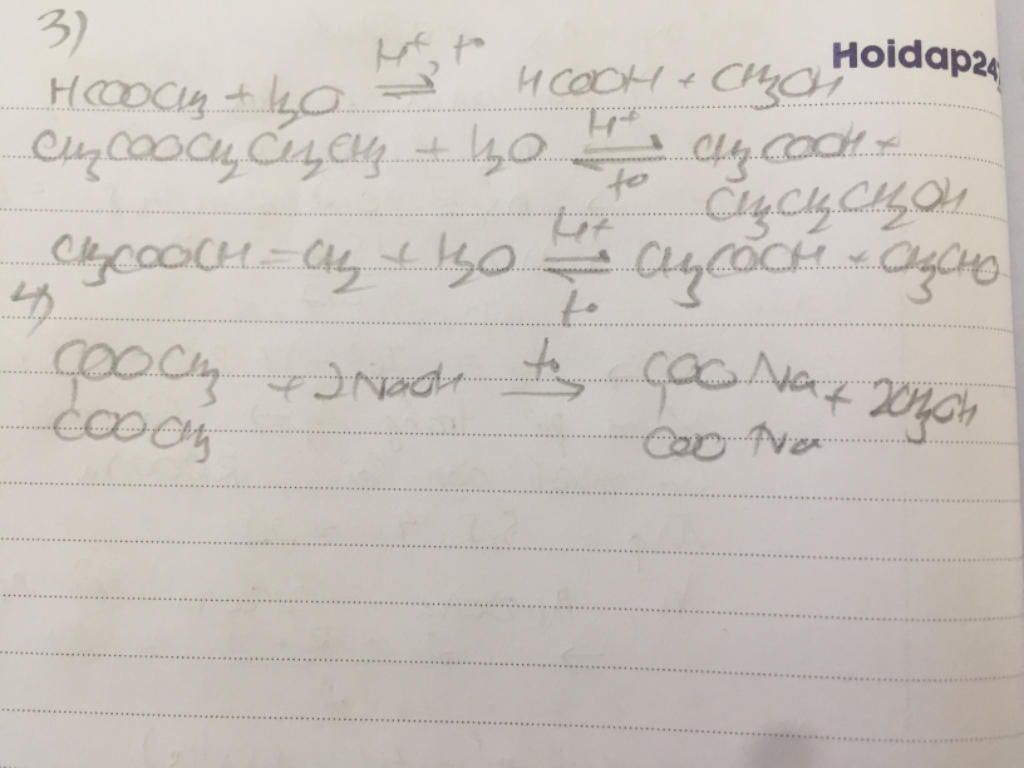 3)
Hoidap24
H⁺, t°
HCOOCH₃ + H₂O ⇌ HCOOH + CH₃OH
CH₃COOCH₂CH₂CH₃ + H₂O ⇌ CH₃COOH +
H⁺
t°
CH₃CH₂CH₂OH
CH₃COOCH=CH₂ + H₂O ⇌ CH₃COOH + CH₃CHO
H⁺
t°
4)
COOCH₃
|
COOCH₃
+ 2NaOH
t°
→
COONa
|
COONa
+ 2CH₃OH